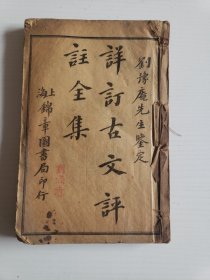 劉豫庵先生鉴定
詳訂古文評
註全集
上海錦章圖書局印行